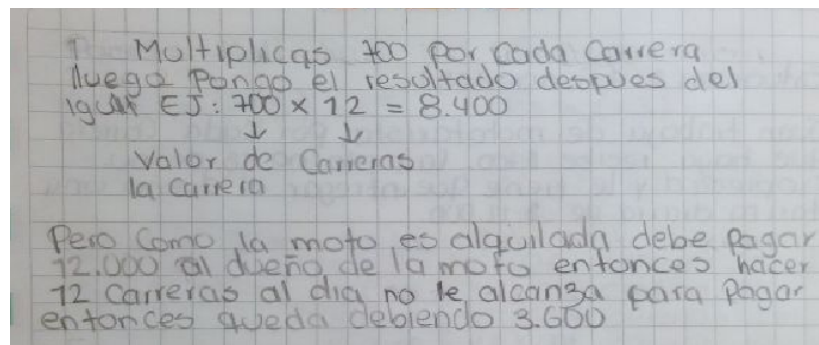 1. Multiplicas 700 por cada Carrera
luego Pongo el resultado despues del
igual EJ: 700 x 12 = 8.400
↓ ↓
Valor de Carreras
la carrera
Pero Como la moto es alquilada debe Pagar
12.000 al dueño de la moto entonces hacer
12 Carreras al dia no le alcanza para Pagar
entonces queda debiendo 3.600